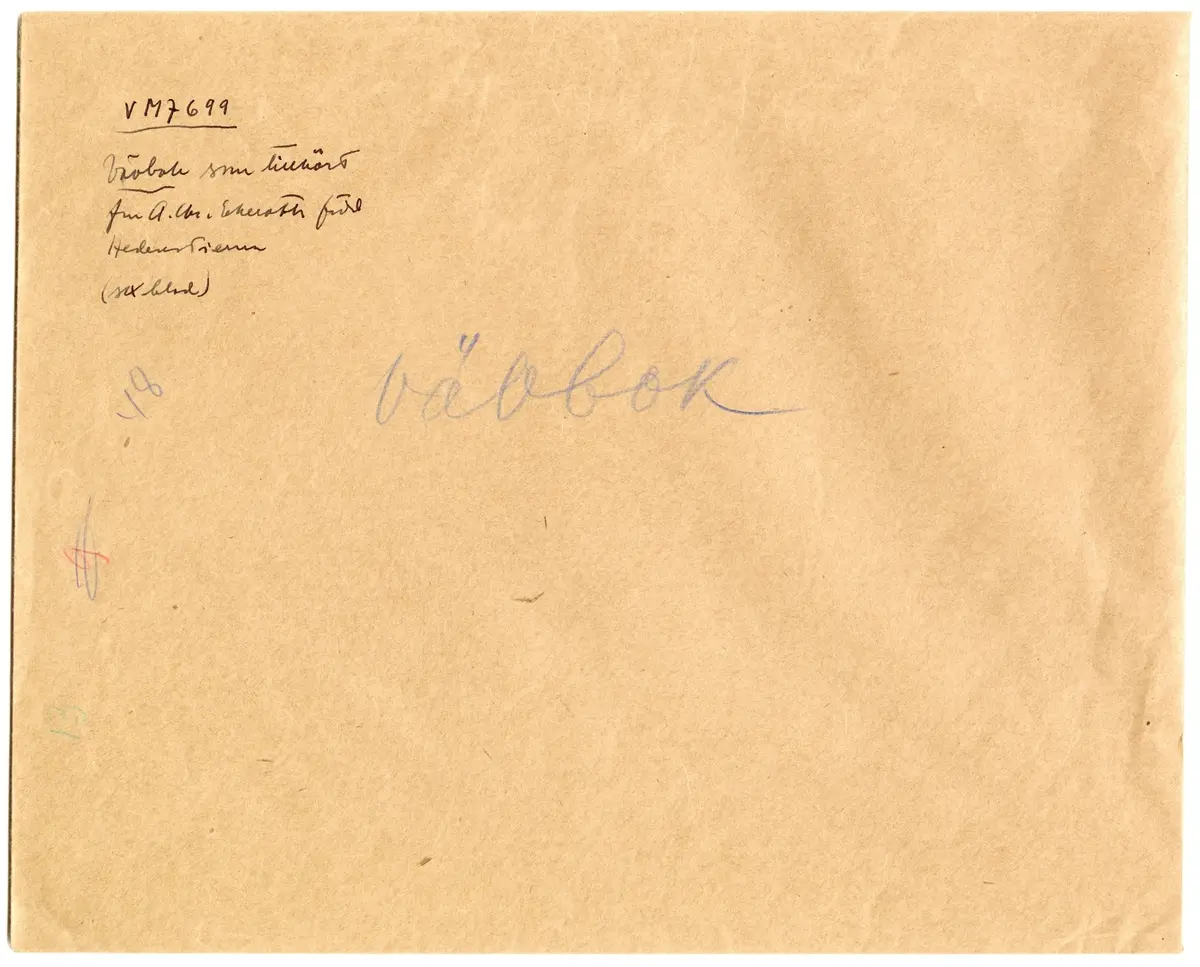 VM7699
Vävbok som tillhört
fru A. Chr. Ekeroth född
Hedenstierna
(sex blad)
48
vävbok